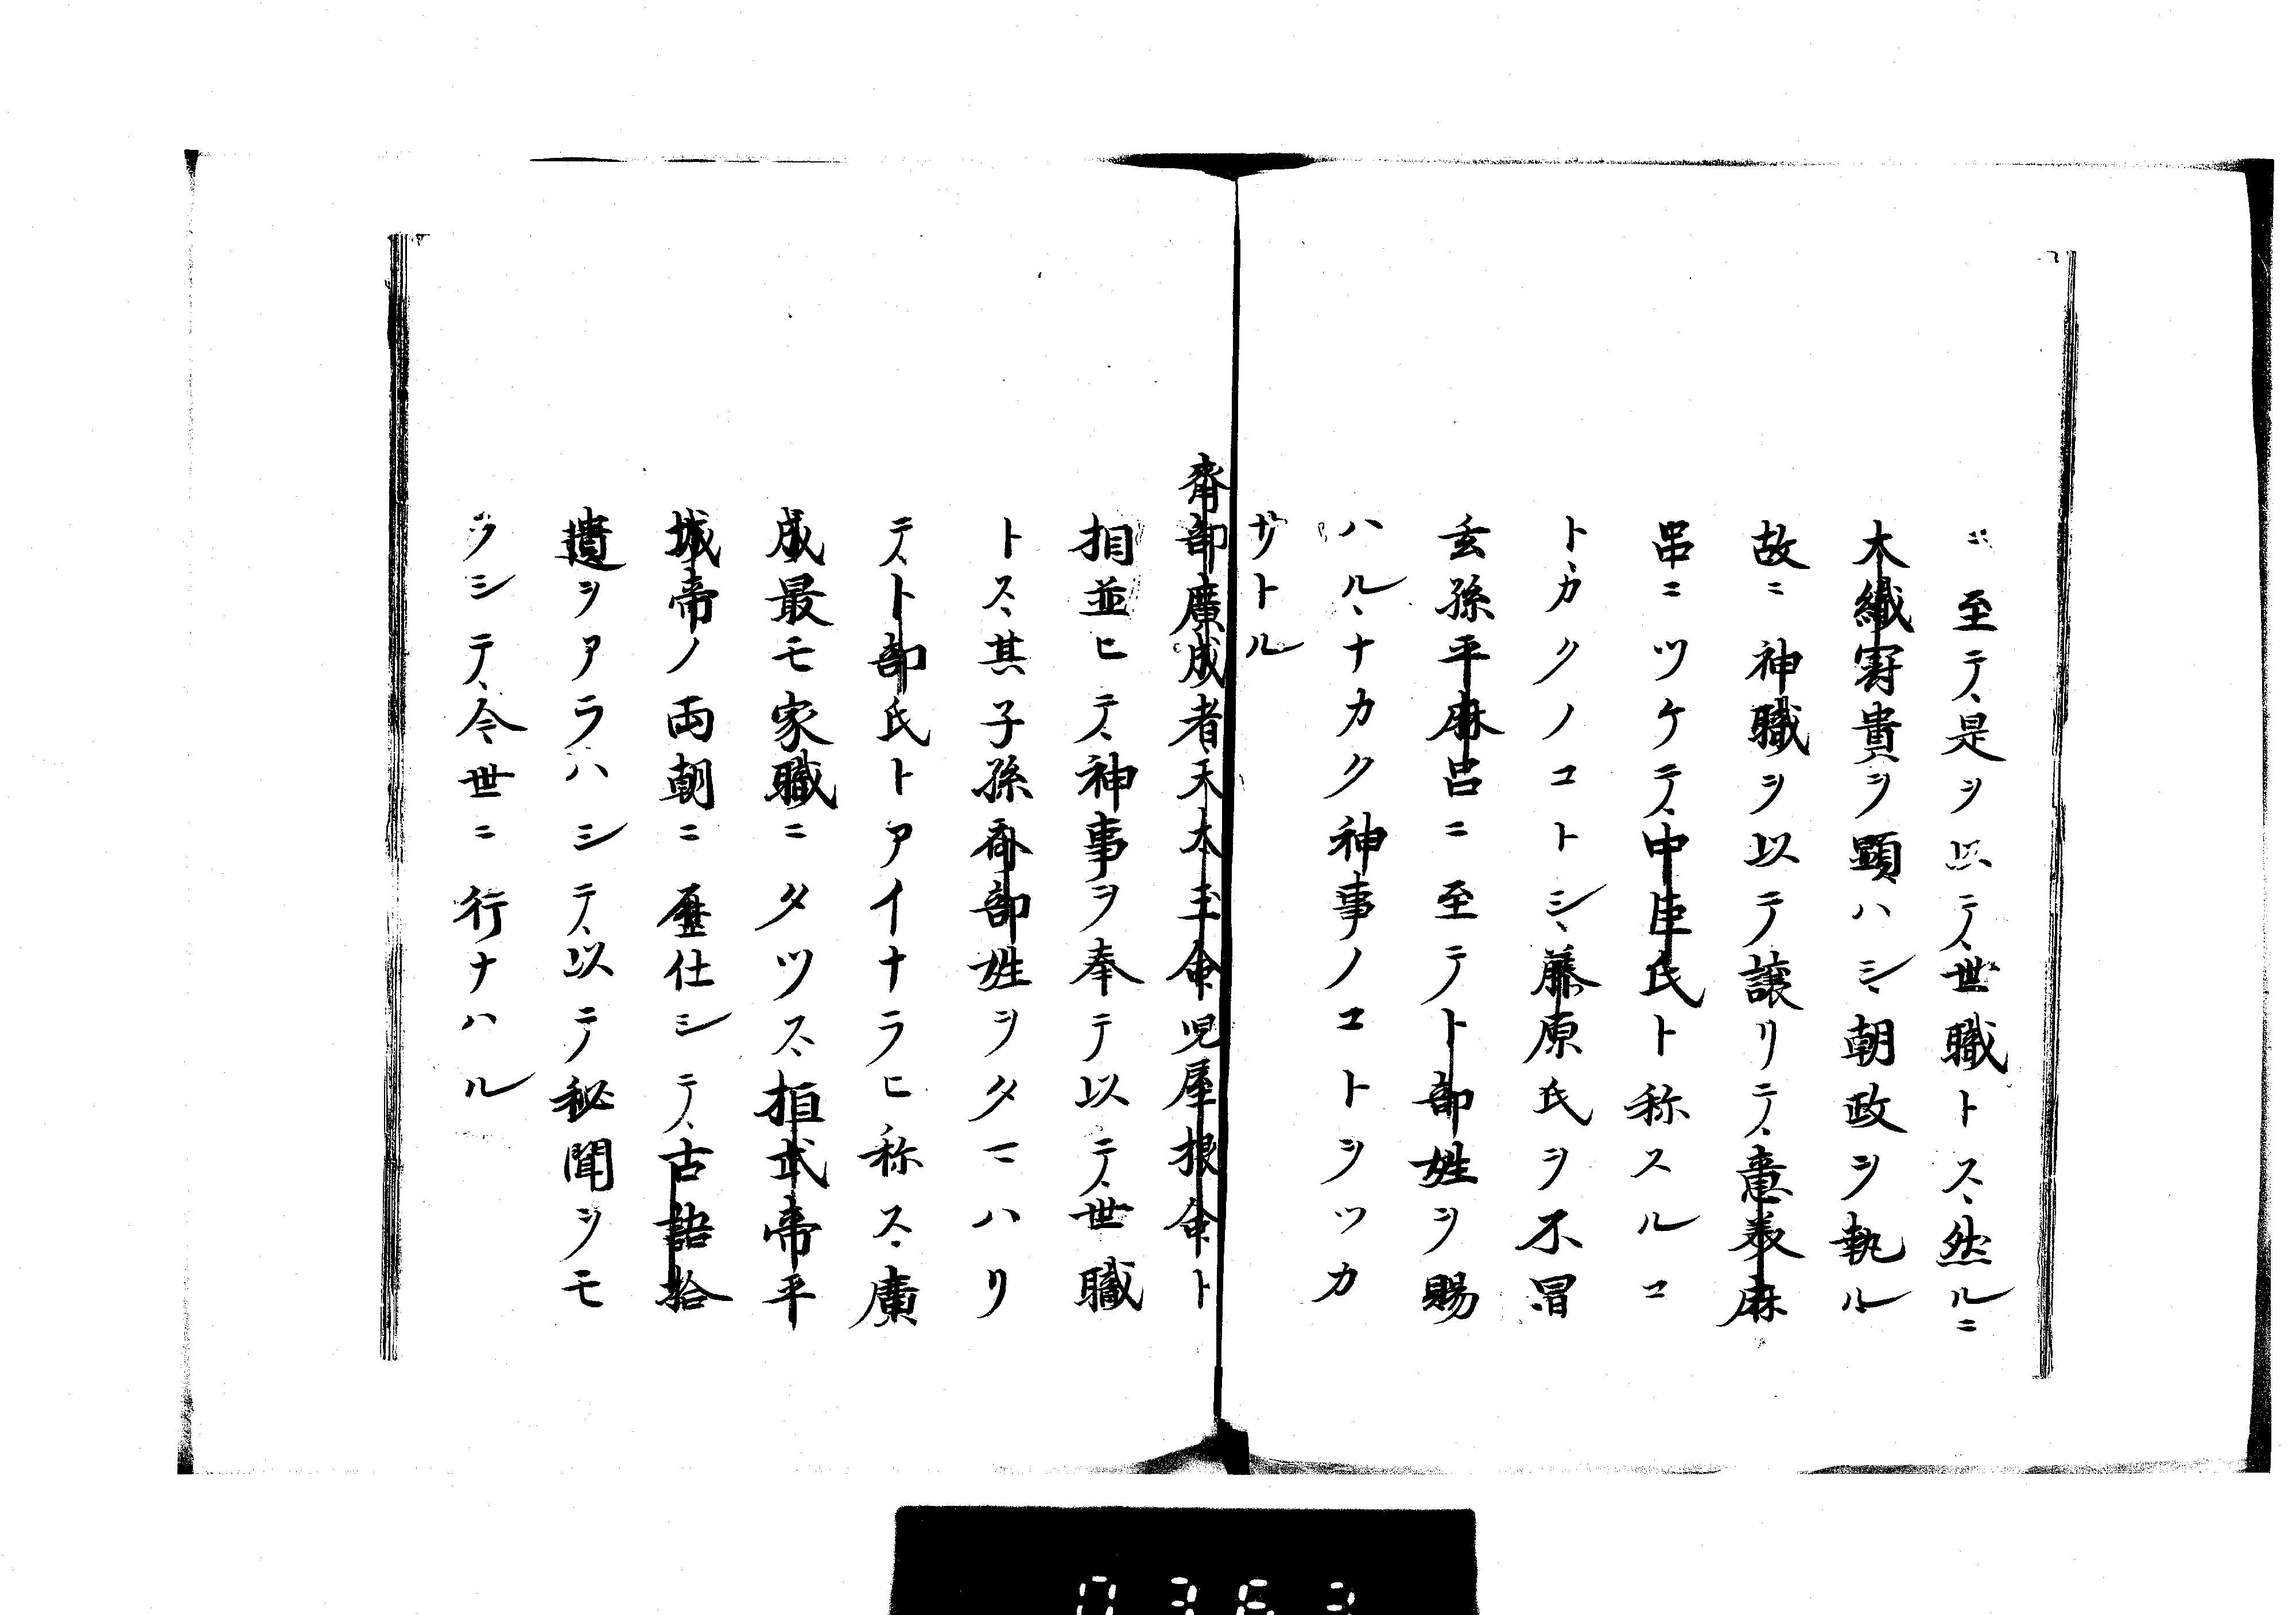 ニ至テ是ヲ以テ世職トス然ルニ
大織冠貴ヲ顕ハシ朝政ヲ執ル
故ニ神職ヲ以テ譲リテ意美麻
呂ニツケテ中臣氏ト称スルコ
トカクノコトシ藤原氏ヲ不冒
玄孫平麻呂ニ至テト部姓ヲ賜
ハルナカク神事ノコトヲツカ
サトル
齊部廣成者天太玉命児屋根命ト
相並ヒテ神事ヲ奉テ以テ世職
トス其子孫斎部姓ヲタマハリ
テト部氏トアイナラヒ称ス廣
成最モ家職ニタツス桓武帝平
城帝ノ両朝ニ歴仕シテ古語拾
遺ヲアラハシテ以テ秘聞ヲモ
ラシテ今世ニ行ナハル
0363